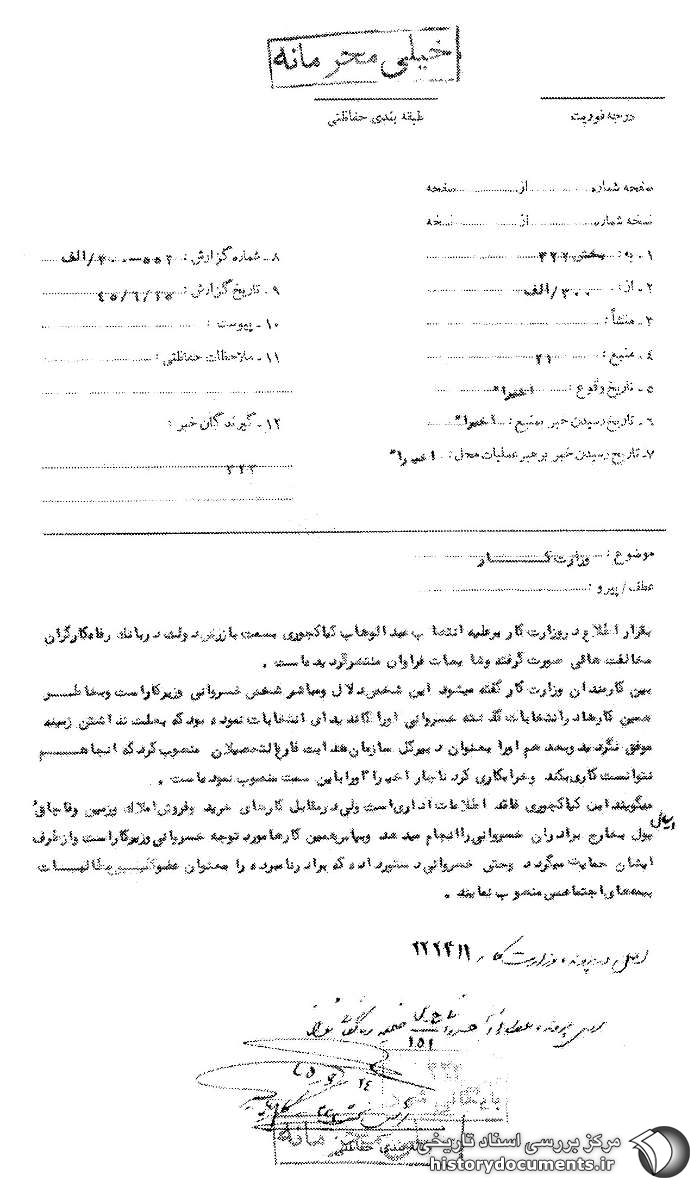 خیلی محرمانه
درجه فوریت
طبقه بندی حفاظتی
صفحه شماره از صفحه
نسخه شماره از نسخه
۱ـ به : بخش ۳۲۲
۲ـ از : ۳۰۰/الف
۳ـ منشأ :
۴ـ منبع : ۲۱
۵ـ تاریخ وقوع : اخیرا"
۶ـ تاریخ رسیدن خبر بمنبع : اخیرا"
۷ـ تاریخ رسیدن خبر برهبر عملیات محل : اخیرا"
۸ـ شماره گزارش :
۹ـ تاریخ گزارش : ۴۵/۶/۲۵
۱۰ـ پیوست :
۱۱ـ ملاحظات حفاظتی :
۱۲ـ گیرندگان خبر :
۳۲۲
موضوع : وزارت کـــار
عطف/پیرو :
بقرار اطلاع در وزارت کار برعلیه انتصاب عبدالوهاب کیاکجوری بسمت بازرس دولت در بانك رفاه کارگران
مخالفت هائی صورت گرفته وشایعات فراوان منتشرگردیده است .
بین کارمندان وزارت کار گفته میشود این شخص دلال ومباشر شخص خسروانی وزیرکاراست وبخاطر
همین کارها درانتخابات گذشته خسروانی اورا کاندیدای انتخابات نموده بود که بعلت نداشتن زمینه
موفق نگردید وبعد هم اورا بعنوان دبیرکل سازمان هدایت فارغ التحصیلان منصوب کرد که آنجا هم
نتوانست کاری بکند وخرابکاری کرد ناچار اخیرا اورا باین سمت منصوب نموده است .
میگویند این کیاکجوری فاقد اطلاعات اداری است ولی درمقابل کارهای خرید وفروش املاك وزمین وقاچاق
ارسال
پول بخارج برادران خسروانی راانجام میدهد وبنابرهمین کارها مورد توجه خسروانی وزیرکاراست وازطرف
ایشان حمایت میگردد وحتی خسروانی دستور داده که برادر نامبرده را بعنوان عضو کمیسیون مطالبات
بیمه های اجتماعی منصوب نمایند .
اصل در پرونده وزارت کار
۱۵۱
۳۲۲
بایگانی شود
خیلی محرمانه
طبقه بندی حفاظتی
مرکز بررسی اسناد تاریخی
historydocuments.ir